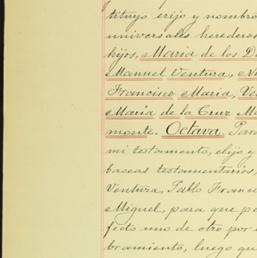 tituyo erijo y nombro
universales heredero
hijos, Maria de los D
Manuel Ventura, N
Francisco Maria, Ve
Maria de la Cruz M
monte. Octava. Para
mi testamento, elijo y
baceas testamentarios,
Ventura, Pablo Franc
Miguel, para que p
fecto uno de otro por
bramiento, luego qu